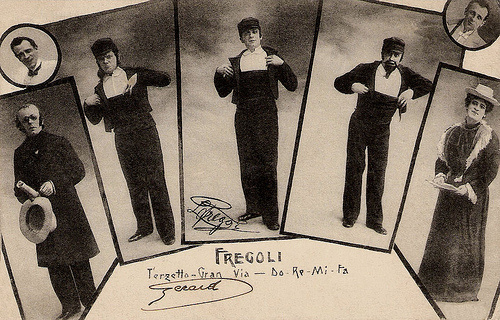 Fregoli
FREGOLI
Terzetto-Gran Via — Do-Re-Mi-Fa
Gerard